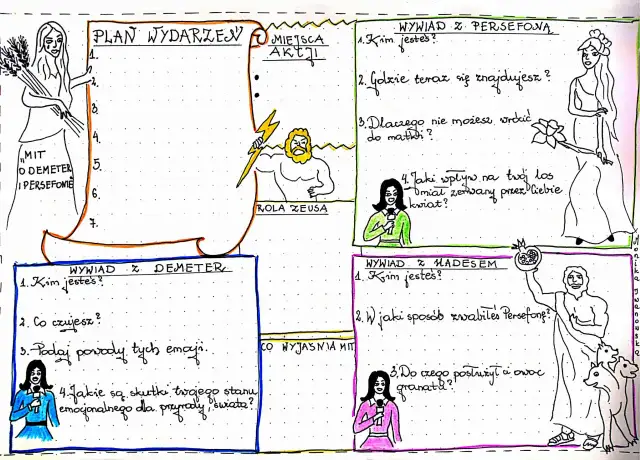 PLAN WYDARZEŃ
1.
2.
3.
4.
5.
6.
7.
„MIT
O DEMETER
I PERSEFONIE"
MIEJSCA
AKCJI
ROLA ZEUSA
CO WYJAŚNIA MIT
WYWIAD Z PERSEFONĄ
1. Kim jesteś?
2. Gdzie teraz się znajdujesz?
3. Dlaczego nie możesz wrócić
do matki?
4. Jaki wpływ na twój los
miał zerwany przez Ciebie
kwiat?
WYWIAD Z DEMETER
1. Kim jesteś?
2. Co czujesz?
3. Podaj powody tych emocji.
4. Jakie są skutki twojego stanu
emocjonalnego dla przyrody, świata?
WYWIAD Z HADESEM
1. Kim jesteś?
2. W jaki sposób zwabiłeś Persefonę?
3. Do czego posłużył ci owoc
granatu?